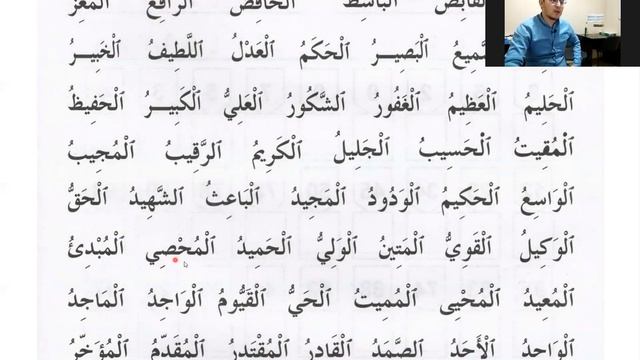 الْقَابِضُ الْبَاسِطُ الْخَافِضُ الرَّافِعُ الْمُعِزُّ
الْبَصِيـــرُ الْحَكَمُ الْعَدْلُ اللَّطِيفُ الْخَبِيـــرُ
الْحَلِيمُ الْعَظِيمُ الْغَفُورُ الشَّكُورُ الْعَلِيُّ الْكَبِيـــرُ الْحَفِيظُ
الْمُقِيتُ الْحَسِيبُ الْجَلِيلُ الْكَرِيمُ الرَّقِيبُ الْمُجِيبُ
الْوَاسِعُ الْحَكِيمُ الْوَدُودُ الْمَجِيدُ الْبَاعِثُ الشَّهِيدُ الْحَقُّ
الْوَكِيلُ الْقَوِيُّ الْمَتِينُ الْوَلِيُّ الْحَمِيدُ الْمُحْصِي الْمُبْدِئُ
الْمُعِيدُ الْمُحْيِى الْمُمِيتُ الْحَيُّ الْقَيُّومُ الْوَاجِدُ الْمَاجِدُ
الْوَاحِدُ الْأَحَدُ الصَّمَدُ الْقَادِرُ الْمُقْتَدِرُ الْمُقَدِّمُ الْمُؤَخِّرُ